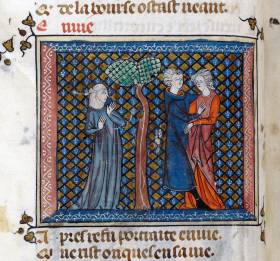 Q de la bourse ostast neant.
Enuie
Apres refu portraite enuie
Q ne rist onques en sa uie.